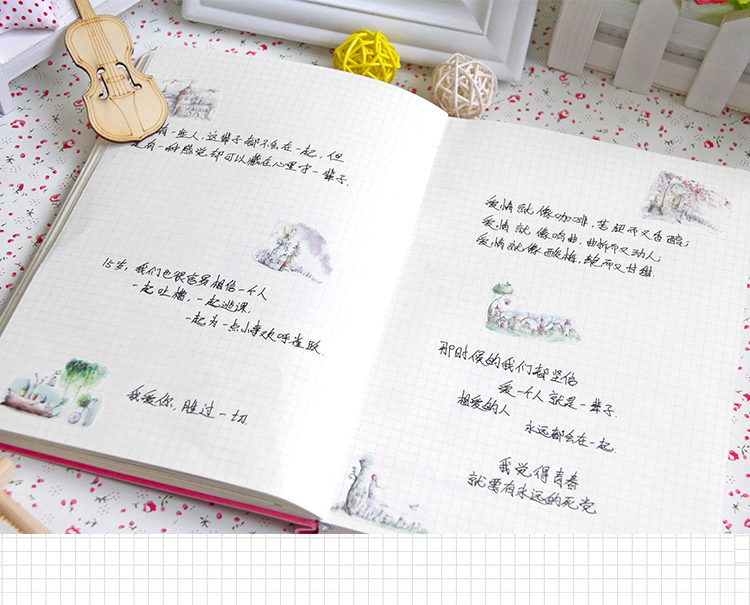 有一些人，这辈子都不会在一起，但
是有一种感觉却可以藏在心里守一辈子.
15岁，我们也很容易相信一个人
一起吐槽，一起逃课，
一起为一点小事欢呼雀跃.
我爱你，胜过一切.
爱情就像咖啡，苦涩而又香醇；
爱情就像响曲，曲折而又动人；
爱情就像酸梅，纯而又甘甜.
那时候的我们都坚信
爱一个人就是一辈子.
相爱的人
永远都会在一起.
我觉得青春
就要有永远的死党